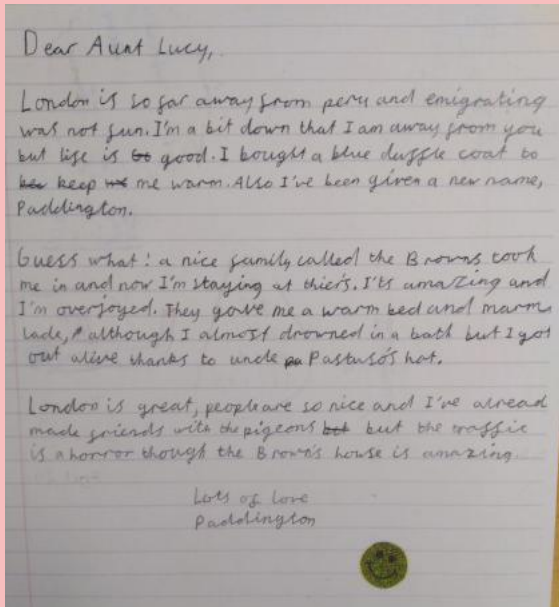 Dear Aunt Lucy,
London is so far away from peru and emigrating
was not fun. I'm a bit down that I am away from you
but life is good. I bought a blue duffle coat to
keep me warm. Also I've been given a new name,
Paddington.
Guess what! a nice family called the Browns took
me in and now I'm staying at thiers. I'ts amazing and
I'm overjoyed. They gave me a warm bed and marm
lade, although I almost drowned in a bath but I got
out alive thanks to uncle Pastuso's hat.
London is great, people are so nice and I've alread
made friends with the pigeons but the traffic
is a horror though the Brown's house is amazing.
Lots of love
Paddington